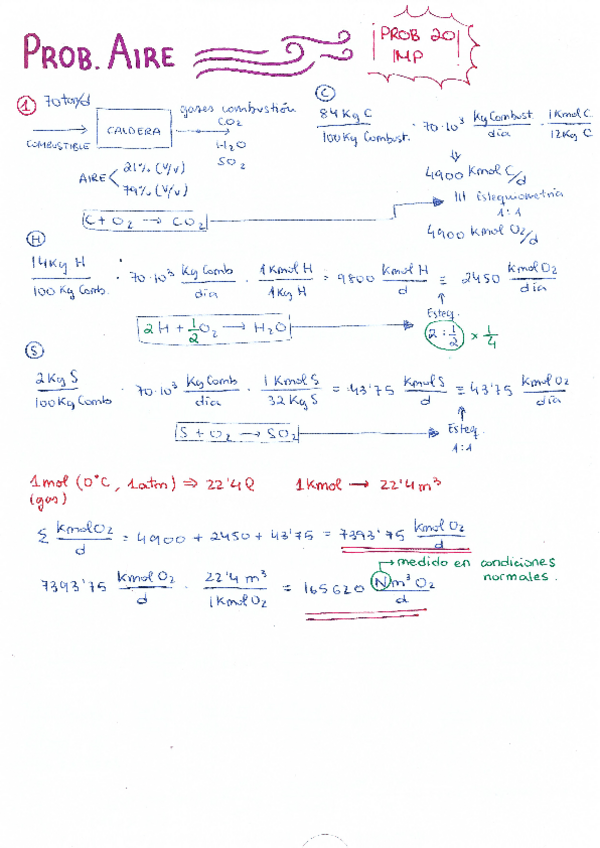 PROB. AIRE
¡PROB 20!
IMP
① 70 ton/d
COMBUSTIBLE
CALDERA
gases combustión
CO₂
H₂O
SO₂
AIRE < 21% (V/V)
79% (V/V)
C + O₂ → CO₂
Ⓒ
84 Kg C / 100 Kg Combust. · 70·10³ Kg Combust. / día · 1 Kmol C / 12 Kg C
4900 Kmol C/d
estequiometría
1:1
4900 Kmol O₂/d
Ⓗ
14 Kg H / 100 Kg Comb. · 70·10³ Kg Comb / día · 1 Kmol H / 1 Kg H = 9800 Kmol H / d ≡ 2450 Kmol O₂ / día
Esteq.
2H + ½O₂ → H₂O
2 : ½ × ¼
Ⓢ
2 Kg S / 100 Kg Comb · 70·10³ Kg Comb / día · 1 Kmol S / 32 Kg S = 43'75 Kmol S / d ≡ 43'75 Kmol O₂ / día
S + O₂ → SO₂
Esteq.
1:1
1 mol (0°C, 1 atm) ⇒ 22'4 l 1 Kmol → 22'4 m³
(gas)
Σ Kmol O₂ / d = 4900 + 2450 + 43'75 = 7393'75 Kmol O₂ / d
medido en condiciones
normales.
7393'75 Kmol O₂ / d · 22'4 m³ / 1 Kmol O₂ = 165620 Nm³ O₂ / d